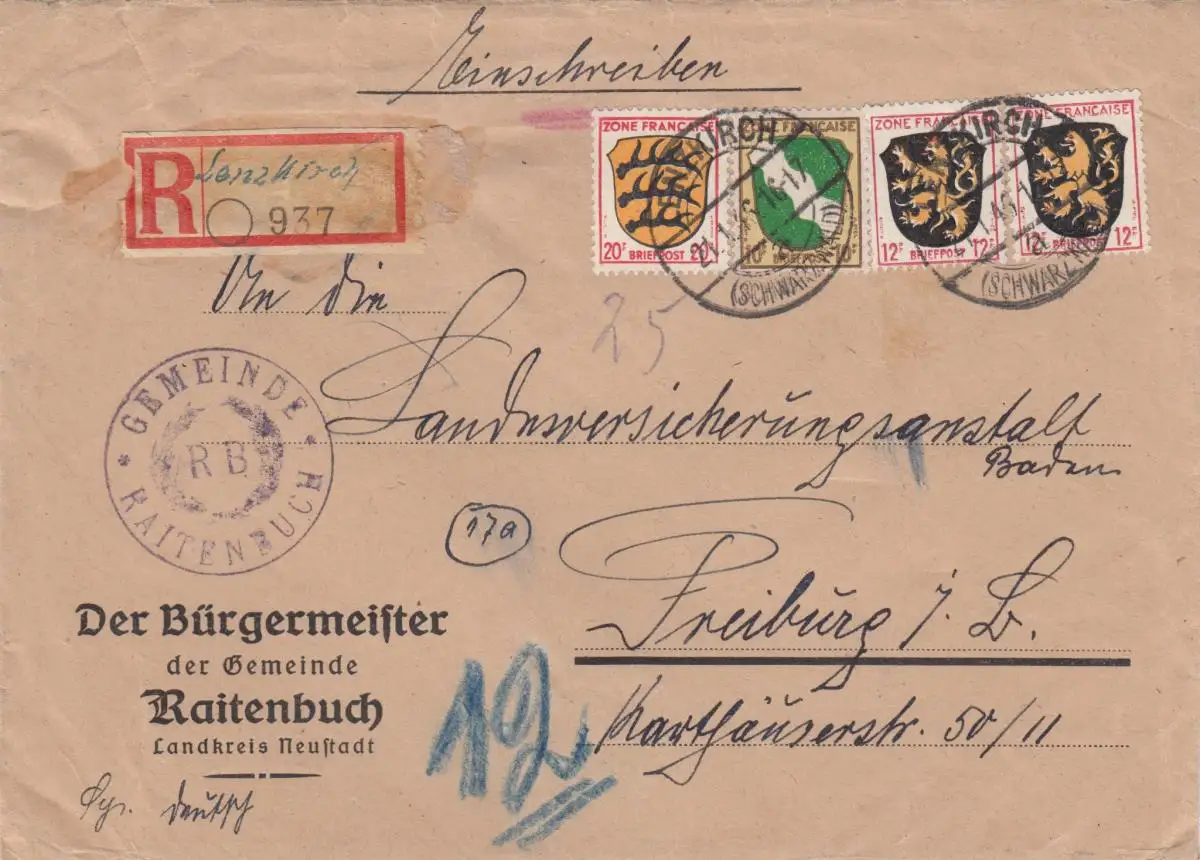 Einschreiben
R Lenzkirch
937
ZONE FRANÇAISE
20F BRIEFPOST 20F
ZONE FRANÇAISE
10F BRIEFPOST 10F
ZONE FRANÇAISE
12F BRIEFPOST 12F
ZONE FRANÇAISE
12F BRIEFPOST 12F
(SCHWARZWALD)
(SCHWARZWALD)
An die
25
Landesversicherungsanstalt
Baden
GEMEINDE
RB
RAITENBUCH
17a
Freiburg i. B.
Karthäuserstr. 50/11
Der Bürgermeiſter
der Gemeinde
Raitenbuch
Landkreis Neuſtadt
12
deutsch